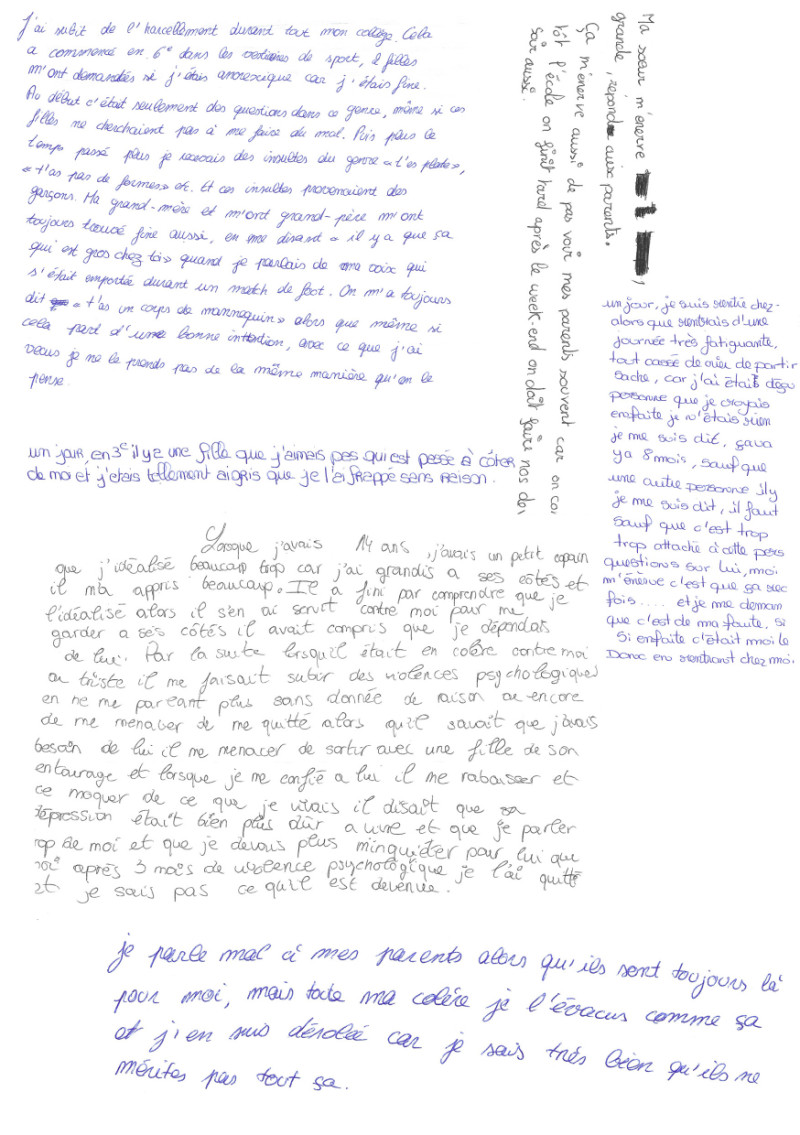 J'ai subit de l'harcellement durant tout mon collège. Cela
a commencé en 6e dans les vestiaires de sport, 2 filles
m'ont demandés si j'étais anorexique car j'étais fine.
Au début c'était seulement des questions dans ce genre, même si ces
filles ne cherchaient pas à me faire du mal. Puis plus le
temps passé plus je recevais des insultes du genre « t'es plate »,
« t'as pas de formes » etc. Et ces insultes provenaient des
garçons. Ma grand-mère et m'ont grand-père m'ont
toujours trouvé fine aussi, en me disant « il y a que ça
qui est gros chez toi » quand je parlais de ma voix qui
s'était emportée durant un match de foot. On m'a toujours
dit « t'as un corps de mannequin » alors que même si
cela part d'une bonne intention, avec ce que j'ai
vécus je ne le prends pas de la même manière qu'on le
pense.
Ma sœur m'énerve
grande, répond aux parents.
Ça m'énerve aussi de pas voir mes parents souvent car on co
tôt l'école on finit tard après le week-end on doit faire nos de
soir aussi.
un jour, je suis rentrée chez-
alors que rentrais d'une
journée très fatiguante,
tout cassé de rien de partir
sache, car j'ai était déçu
personne que je croyais
enfaite je n'étais rien
je me suis dit, çava
ya 8 mois, sauf que
une autre personne ily
je me suis dit, il faut
sauf que c'est trop
trop attaché à cette pers
questions sur lui, moi
m'énerve c'est que ça sec
fois..... et je me deman
que c'est de ma faute, si
Si enfaite c'était moi le
Donc en rentrant chez moi.
un jour, en 3e il y a une fille que j'aimais pas qui est passé à côter
de moi et j'étais tellement aigris que je l'ai frappé sans raison.
Lorsque j'avais 14 ans, j'avais un petit copain
que j'idéalisé beaucoup trop car j'ai grandis a ses côtés et
il ma appris beaucoup. Il a fini par comprendre que je
l'idéalisé alors il s'en ai servit contre moi pour me
garder a ses côtés il avait compris que je dépendais
de lui. Par la suite lorsqu'il était en colère contre moi
ou triste il me faisait subir des violences psychologiques
en ne me parlant plus sans donnée de raison ou encore
de me menacer de me quitté alors qu'il savait que j'avais
besoin de lui il me menacer de sortir avec une fille de son
entourage et lorsque je me confié a lui il me rabaisser et
ce moquer de ce que je vivais il disait que sa
dépression était bien plus dûr a vivre et que je parler
rop de moi et que je devais plus minquiéter pour lui que
moi après 3 mois de violence psychologique je l'ai quitté
et je sais pas ce qu'il est devenue.
je parle mal à mes parents alors qu'ils sont toujours là
pour moi, mais toute ma colère je l'évacus comme ça
et j'en suis désolée car je sais très bien qu'ils ne
mérites pas tout ça.